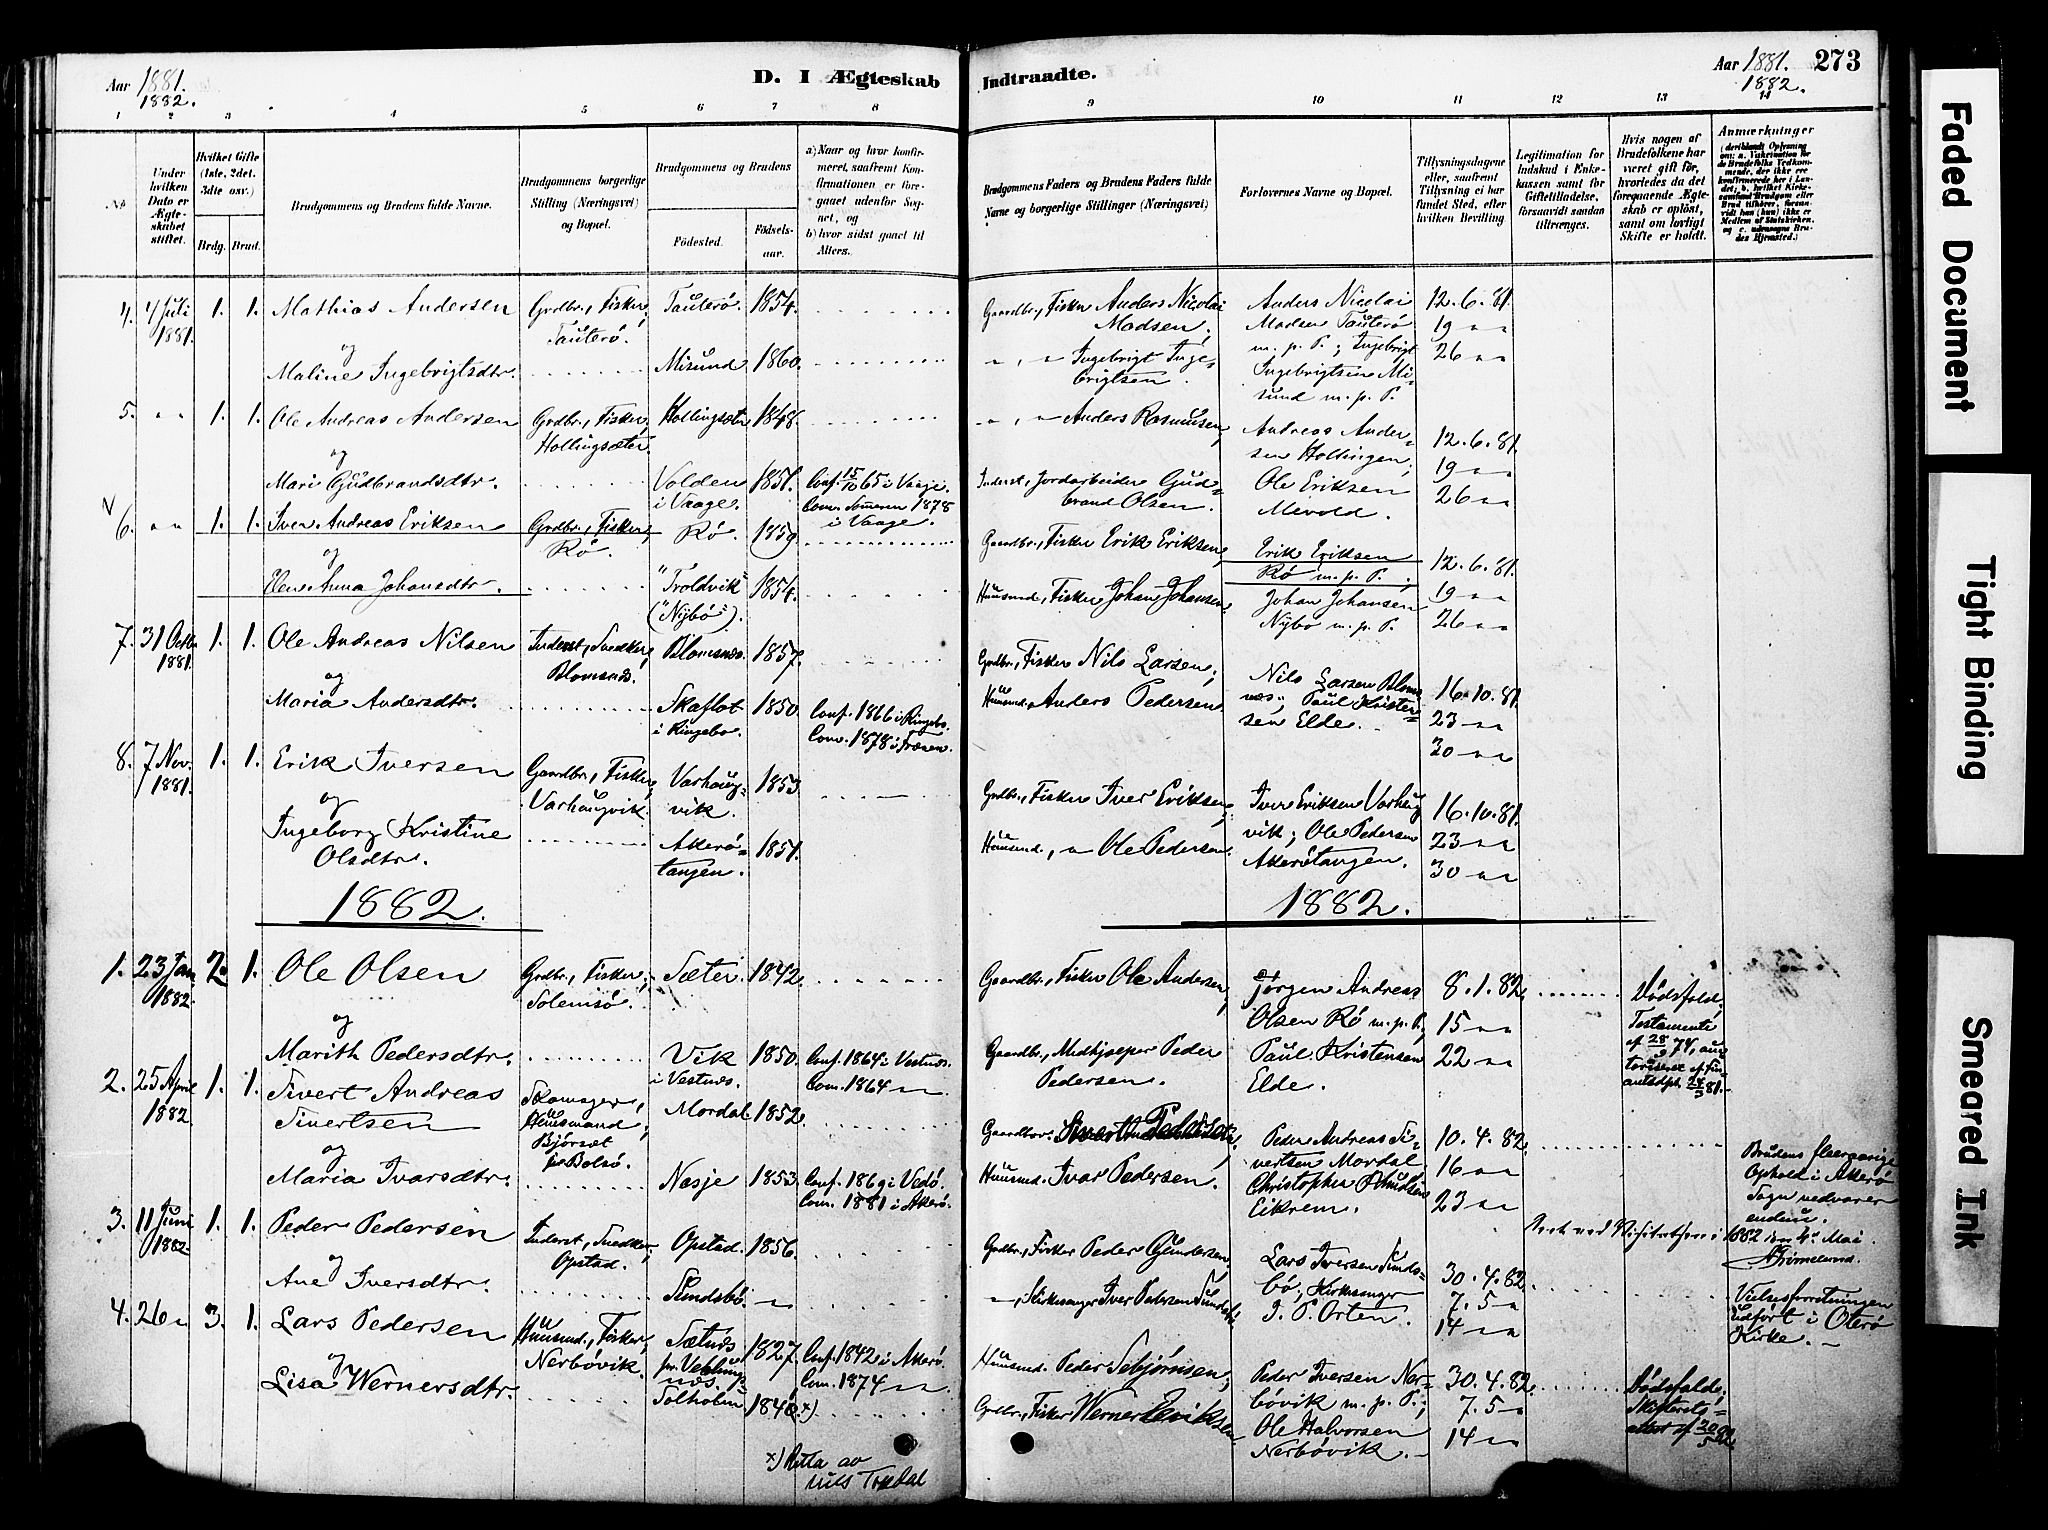 Aar 1881.
1882.
D. I Ægteskab
Indtraadte.
Aar 1881.
1882.
273
1 2 3 4 5 6 7 8
9 10 11 12 13 14
No
Under hvilken Dato er Ægteskabet stiftet.
Hvilket Gifte (1ste, 2det, 3die osv.)
Brdg. Brud.
Brudgommens og Brudens fulde Navne.
Brudgommens borgerlige Stilling (Næringsvei) og Bopæl.
Brudgommens og Brudens
Fødested.
Fødselsaar.
a) Naar og hvor konfirmeret, saafremt Konfirmationen er foregaaet udenfor Sognet, og
b) hvor sidst gaaet til Alters.
Brudgommens Faders og Brudens Faders fulde Navne og borgerlige Stillinger (Næringsvei)
Forlovernes Navne og Bopæl.
Tillysningsdagene eller, saafremt Tillysning ei har fundet Sted, efter hvilken Bevilling
Legitimation for Indskud i Enkekassen samt for Giftetilladelse, forsaavidt saadan tiltrænges.
Hvis nogen af Brudefolkene har været gift før, hvorledes da det foregaaende Ægteskab er opløst, samt om lovligt Skifte er holdt.
Anmærkninger
4. 4 Juli 1881. 1. 1. Mathias Andersen
Grdbr., Fisker, Tauterø.
Tauterø. 1854.
Gaardbr., Fisker Anders Nicolai Madsen;
Anders Nicolai Madsen Tauterø m. p. P.; Ingebrigt Ingebrigtsen Misund m. p. P.
12. 6. 81.
19 " "
26 " "
og
Maline Ingebrigtsdtr.
Misund 1860.
" , " Ingebrigt Ingebrigtsen.
5. " " 1. 1. Ole Andreas Andersen
Grdbr., Fisker, Hollingsæter.
Hollingsæter 1848.
" , " Anders Rasmusen,
Andreas Andersen Hollingen;
Ole Eriksen Mevold.
12. 6. 81.
19 " "
26 " "
og
Mari Gudbrandsdtr.
Volden i Vaage. 1851.
Conf. 15/10 65 i Vaage.
Com. Sommeren 1878 i Vaage.
Inderst, Jordarbeider Gudbrand Olsen.
6. " " 1. 1. Iver Andreas Eriksen
Grdbr., Fisker, Rø.
Rø. 1859
Gaardbr., Fisker Erik Eriksen,
Erik Eriksen Rø m. p. P.;
Johan Johansen Nybø m. p. P.
12. 6. 81.
19 " "
26 " "
og
Elen Anna Johansdtr.
"Troldvik" ("Nybø"). 1854.
Huusmd., Fisker Johan Johansen.
7. 31 Octbr 1881. 1. 1. Ole Andreas Nilsen
Inderst, Snedker, Blomsnæs.
Blomsnæs. 1857.
Grdbr., Fisker Nils Larsen;
Nils Larsen Blomsnæs; Paul Kristensen Elde.
16. 10. 81.
23 " "
30 " "
og
Maria Andersdtr.
Skaflot i Ringebo. 1850
Conf. 1866 i Ringebo.
Com. 1878 i Frænen.
Huusmd. Anders Pedersen.
8. 7 Nov. 1881. 1. 1. Erik Iversen
Gaardbr., Fisker, Varhaugvik.
Varhaugvik. 1853
Grdbr., Fisker Iver Eriksen;
Iver Eriksen Varhaugvik; Ole Pedersen Akerøtangen.
16. 10. 81.
23 " "
30 " "
og
Ingeborg Kristine Olsdtr.
Akerøtangen. 1851.
Huusmd., " Ole Pedersen.
1882.
1882.
1. 23 Jan 1882. 2. 1. Ole Olsen
Grdbr., Fisker, Solemsø.
Sæter. 1842.
Gaardbr., Fisker Ole Andersen,
Jørgen Andreas Olsen Rø m. p. P.;
Paul Kristensen Elde.
8. 1. 82.
15 " "
22 " "
Dødsfald;
Testamente af 28/9 74,
og
Marith Pedersdtr.
Vik i Vestnæs. 1850.
Conf. 1864 i Vestnæs.
Com. 1864 " "
Gaardbr., Medhjælper Peder Pedersen.
2. 25 April 1882 1. 1. Sivert Andreas Sivertsen
Skomager, Huusmand, Bjørset pr Bolsø.
Mordal 1852.
Gaardbr.
Peder Andreas Sivertsen Mordal
Christopher Knudsen Eikrem.
10. 4. 82.
16 " "
23 " "
Brudens fleeraarige Ophold i Akerø Sogn vedvarer endnu.
og
Maria Ivarsdtr.
Næsje 1853
Conf. 1869 i Vedø.
Com. 1881 i Akerø.
Huusmd. Ivar Pedersen.
3. 11 Juni 1882. 1. 1. Peder Pedersen
Inderst, Snedker, Opstad.
Opstad. 1856.
Grdbr., Fisker Peder Gundersen
Lars Iversen Sundsbø, Kirkesanger I. P. Orten.
30. 4. 82.
7. 5 "
14 " "
ved Visitatsen i 1882 den 4de Mai
Vielsesforretningen udført i Oterø Kirke.
og
Ane Iversdtr.
Sundsbø. "
" , Kirkesanger Iver Pedersen Sundsbø.
4. 26 " 3. 1. Lars Pedersen
Huusmd., Fisker, Nerbøvik.
Sætnæs pr. Veblungsnæs. 1827.
Conf. 1842 i Akerø.
Com. 1874 " "
Huusmd. Peder Sebjørnsen;
Peder Iversen Nerbøvik m. p. P.;
Ole Halvorsen Nerbøvik.
30. 4. 82.
7. 5 "
14 " "
Dødsfald; Skifteretsattest af 20/5 82.
og
Lisa Wernersdtr.
Solholm 1840. x)
Grdbr., Fisker Werner Eriksen
x) Retta av Nils Tredal
Faded Document
Tight Binding
Smeared Ink